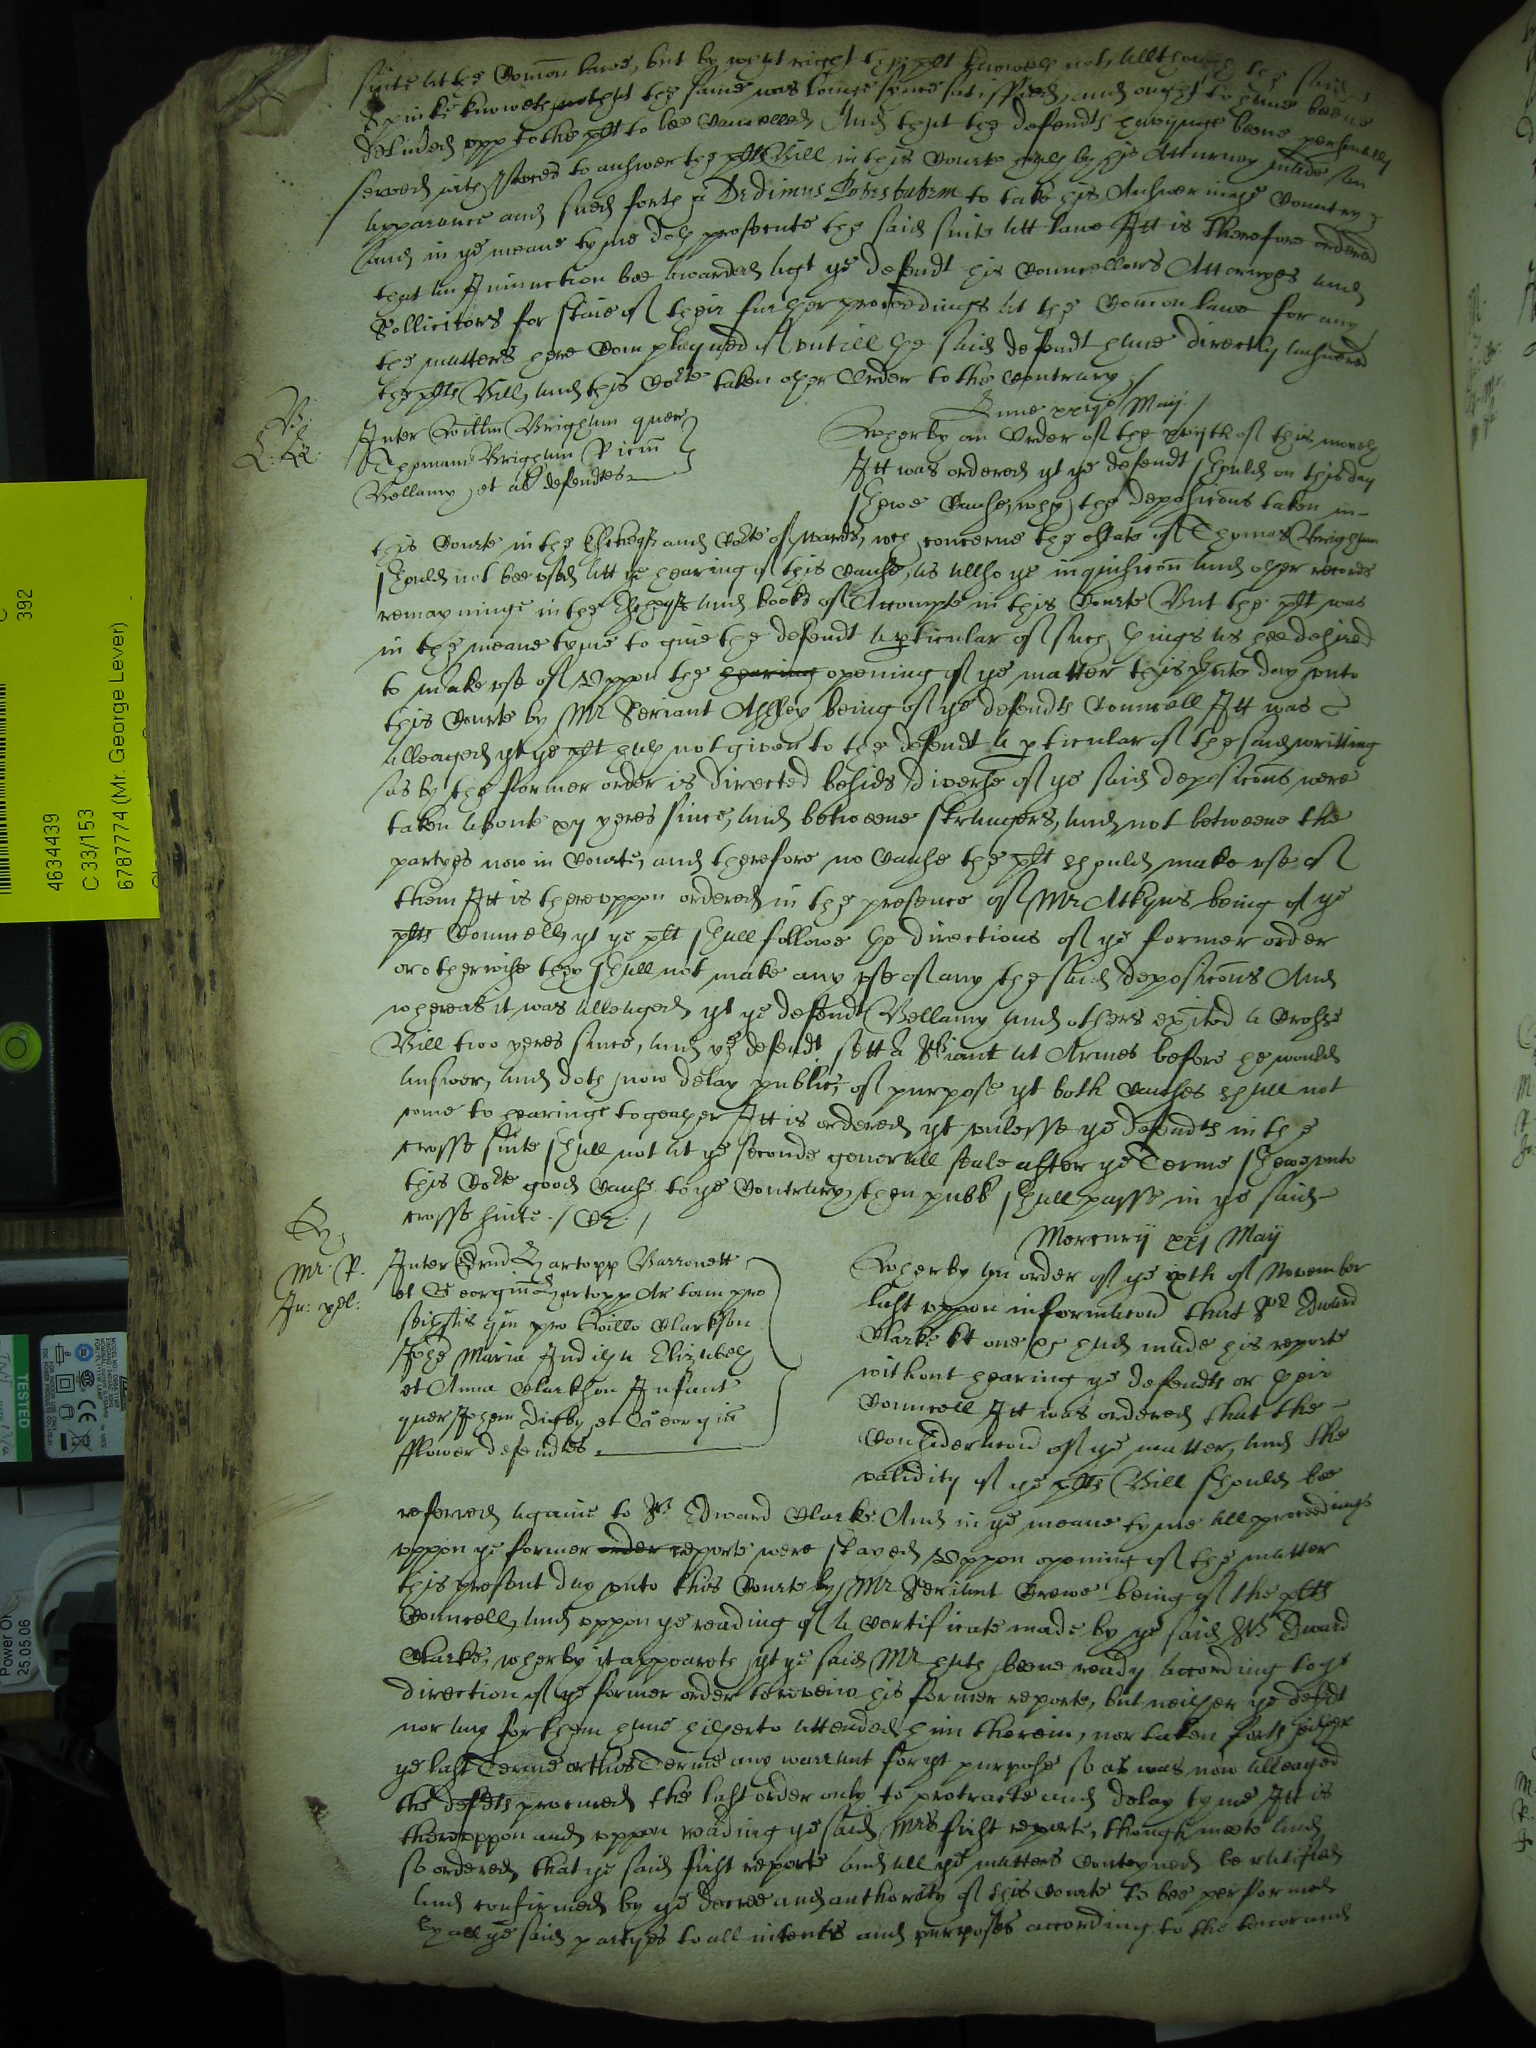 suite att the Comon lawe, but by what right they plt knoweth not, Allthough the said
Spinke knoweth that the same was longe since satisfied, and ought to have beene
delivered upp to the plt to bee Cancelled And that the defendts havynge beene personally
served with processe to answer the plts Bill in this Courte hath by his Atturney made an
Apparance and sued forth a Dedimus Potestatem to take his Answer in the Countrey
And in ye meane tyme doth prosecute the said suite att lawe Itt is therefore ordered
that an Iniunction bee awarded agt ye defendt his Councellors Attornyes and
Sollicitors for staie of their further proceedings at the Comon lawe for any
the matters here Complayned of untill he said defendt have directly answered
the plts Bill, and this Corte taken other Order to the contrary /
B:
Lune xxijo Maij /
Inter Willm Brigham quer
Thomam Brigham Ricm
Bellamy et al defendtes
Wherby an Order of the xvijth of this moneth
Itt was ordered yt ye defendt should on this day
shewe Cause, why the deposicons taken in
this Courte in the Excheqr and Corte of wards, wch concerne the estate of Thomas Brigham
should not bee used att ye hearing of this Cause, as allso ye inquisicon and other records
remayninge in the Excheqr and books of Accompte in this Courte But the plt was
in the meane tyme to give the defendt a pticular of such things as hee desired
to make use of Uppon the hearing opening of ye matter this pnte day unto
this Courte by Mr Seriant Ashley being of ye defendts Councell Itt was
alleaged yt ye plt hath not given to the defendt a pticular of the said writting
as by the former order is directed besids diverse of ye said deposicons were
taken aboute xvj yeres since, and betweene strangers, and not betweene the
partyes now in Courte, and therefore no Cause the plt should make use of
them Itt is thereuppon ordered in the presence of Mr Atkyns being of ye
plts Councell, yt ye plt shall followe the directions of ye former order
or otherwise they shall not make any use of any the said deposicons And
whereas it was alleaged yt ye defendt Bellamy and others exited a Crosse
Bill two yeres since, and ye defendt sett a Seriant at Armes before he would
answer, and doth now delay public, of purpose yt both Causes shall not
come to hearinge togeather Itt is ordered yt unlesse ye defendts in the
crosse suite shall not at ye seconde generall seale after ye Terme shewe unto
this Corte good Cause to ye Contrary, then publ shall passe in ye said
crosse suite /
Mercurij xxj Maij
Mr. P.
Inter Edrud Hartopp Barronett
et Georgiu Hartopp Ar tam pro
seipsis qm pro Willo Clarkson
Johe Maria Judith Elizabeth
et Anna Clarkson Infant
quer Johem Digby et Georgiu
fflower defendtes
Wherby an order of ye ixth of November
last uppon informacon that Sr Edward
Clarke kt one &c had made his reporte
without hearing ye defendts or their
Councell Itt was ordered that the
Consideracon of ye matter, and the
validity of ye plts Bill should bee
referred againe to Sr Edward Clarke And in ye meane tyme all proceedings
uppon ye former order reporte were stayed Uppon opening of the matter
this present day unto this Courte by Mr Seriant Crewe being of the plts
Councell, and uppon ye reading of a Certificate made by ye said Sr Edward
Clarke, wherby it appeareth yt ye said Mr hath beene ready according to ye
direction of ye former order to review his former reporte, but neither ye defdt
nor any for them have hitherto attended him therein, nor taken forth either
ye last Terme or this Terme any warrant for yt purpose so as was now alleaged
the defdts procured the last order only to protracte and delay tyme Itt is
thereuppon and uppon reading ye said Mrs first reporte, thought meete and
so ordered, that ye said first reporte and all ye matters Conteyned be ratified
and confirmed by ye decree and authority of this Courte To bee performed
by all ye said partyes to all intents and purposes according to the tenor and
4634439
C 33/153
392
6787774 (Mr. George Lever)
TESTED
Power O
25.05.06